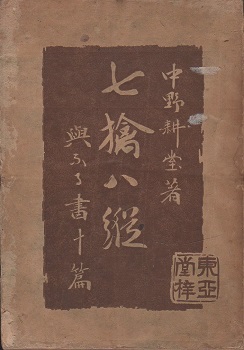 中野耕堂著
七擒八縱
與ふる書十篇
東亞
堂梓